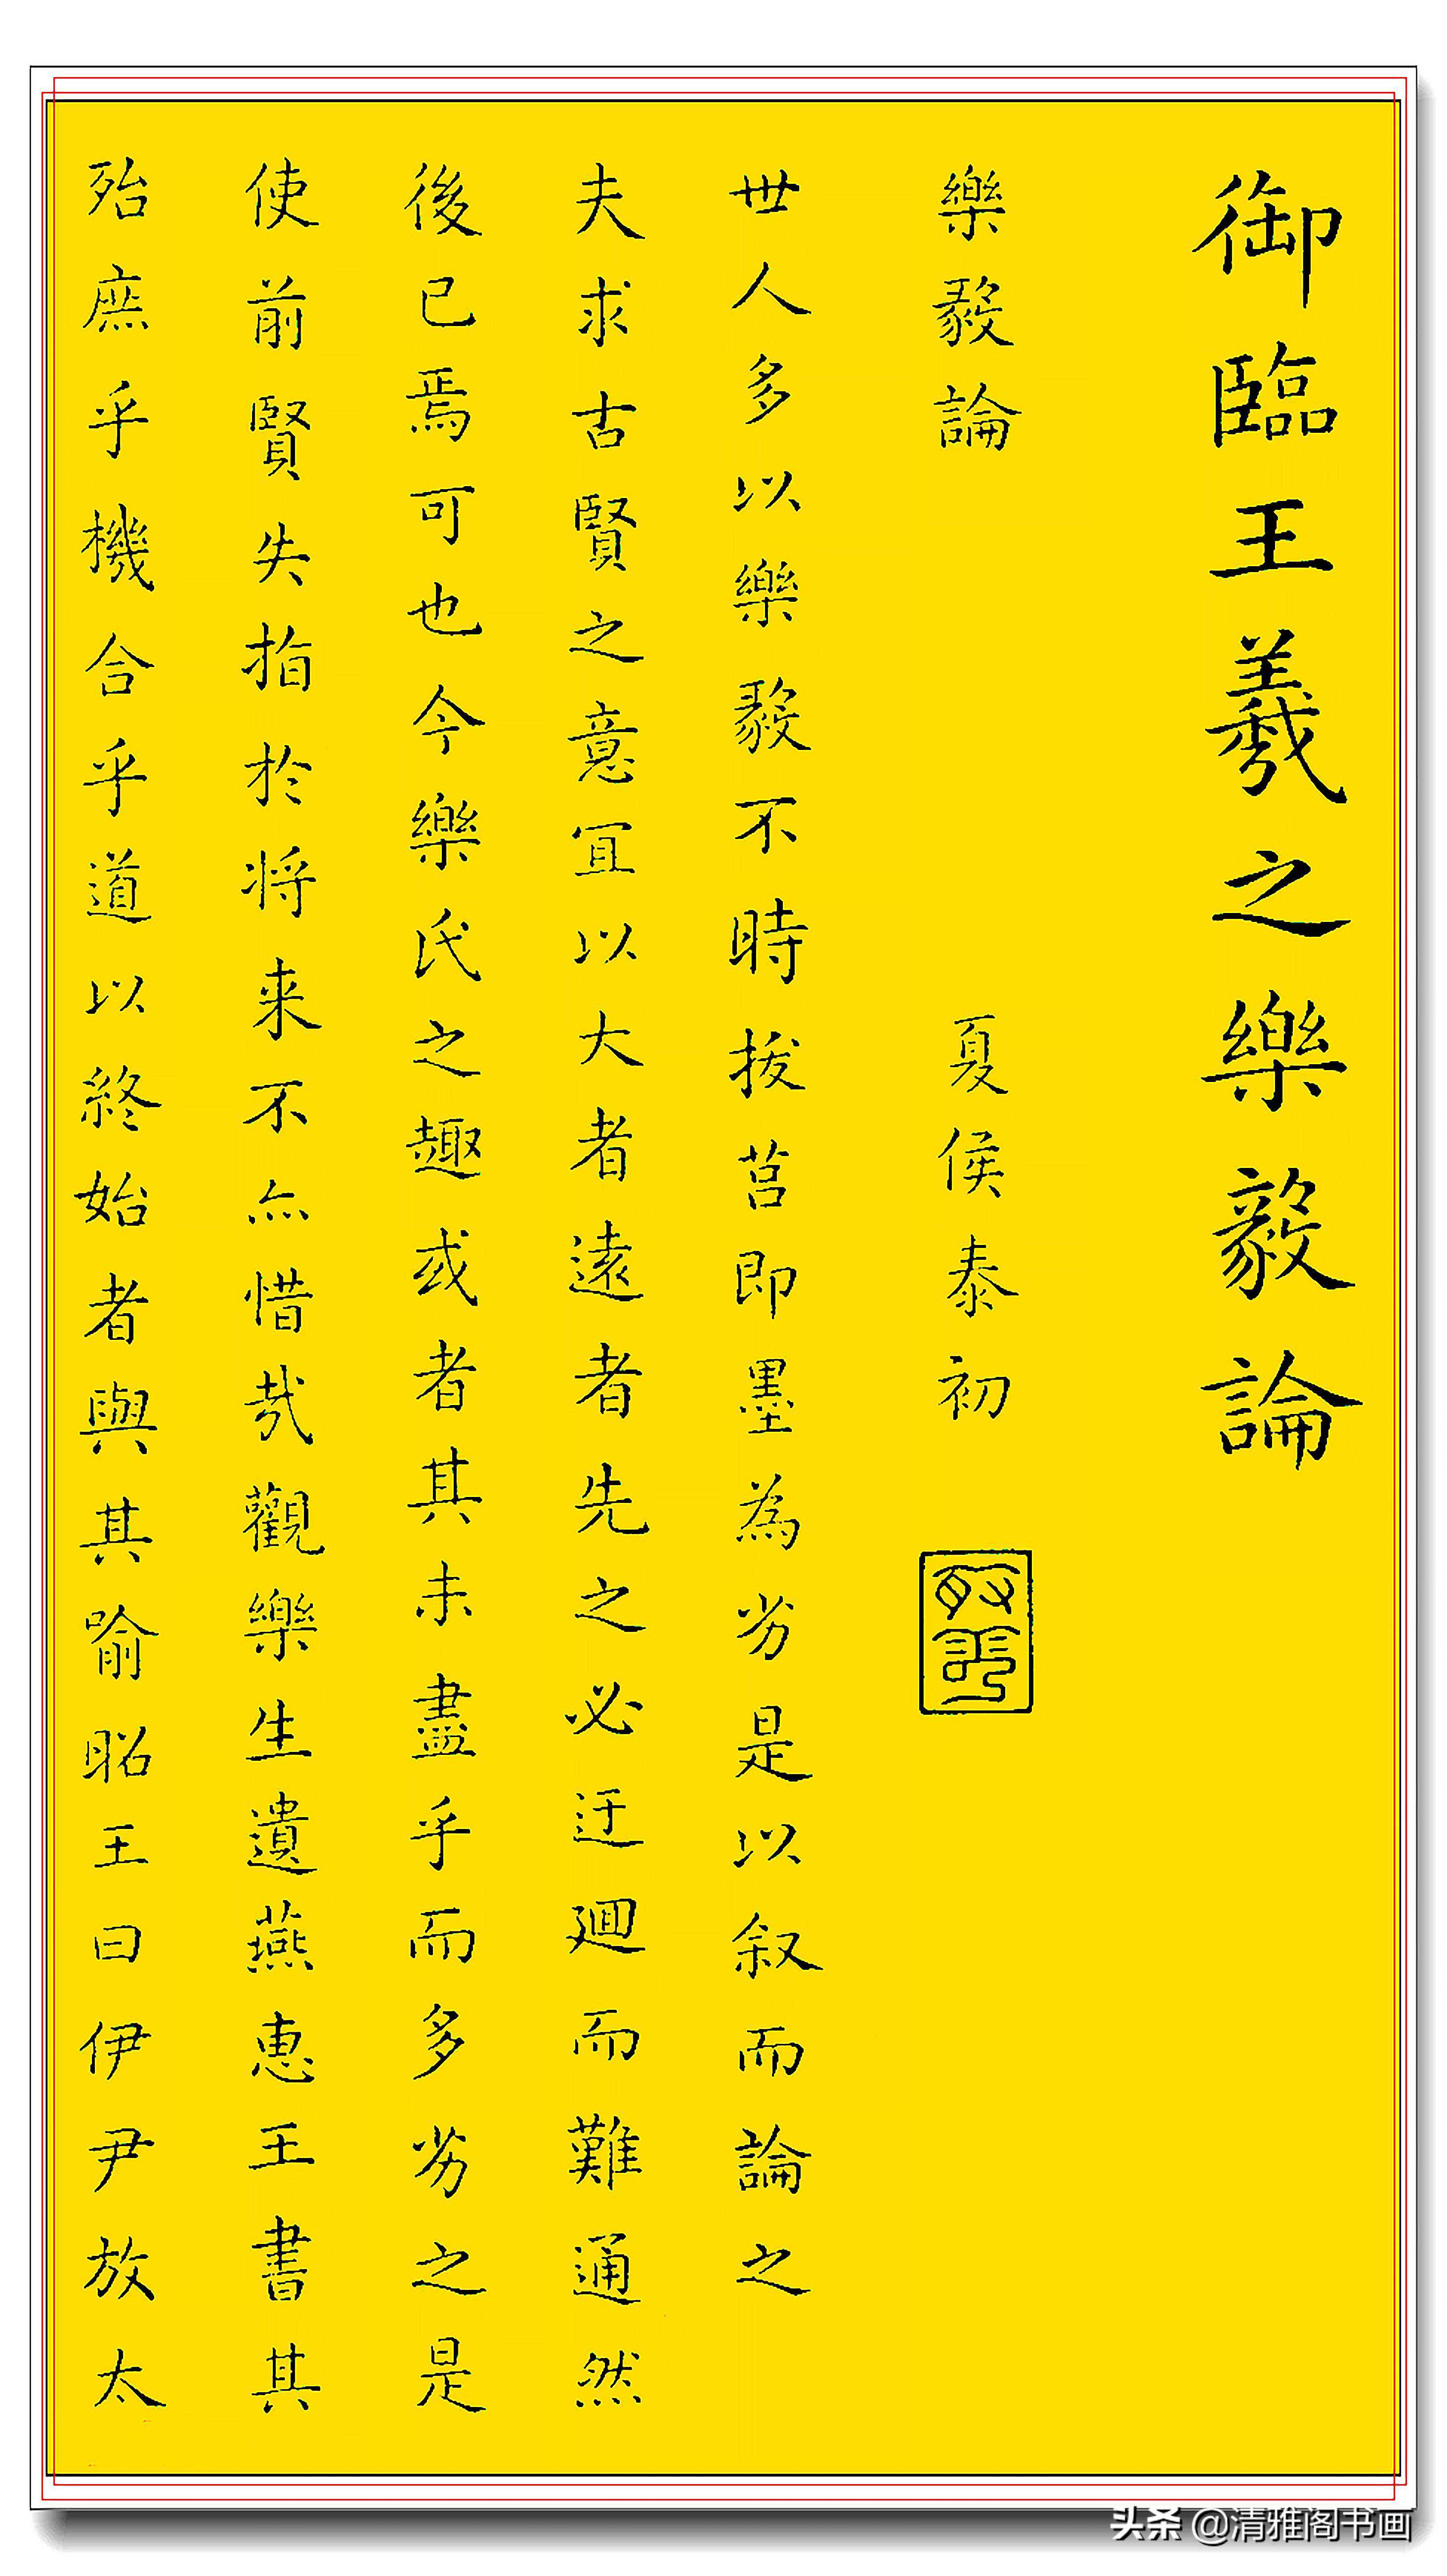 御臨王羲之樂毅論
樂毅論 夏侯泰初
世人多以樂毅不時拔莒即墨為劣是以叙而論之
夫求古賢之意冝以大者遠者先之必迂廻而難通然
後已焉可也今樂氏之趣或者其未盡乎而多劣之是
使前賢失指於将来不亦惜哉觀樂生遺燕惠王書其
殆庶乎機合乎道以終始者與其喻昭王曰伊尹放太
头条 @清雅阁书画